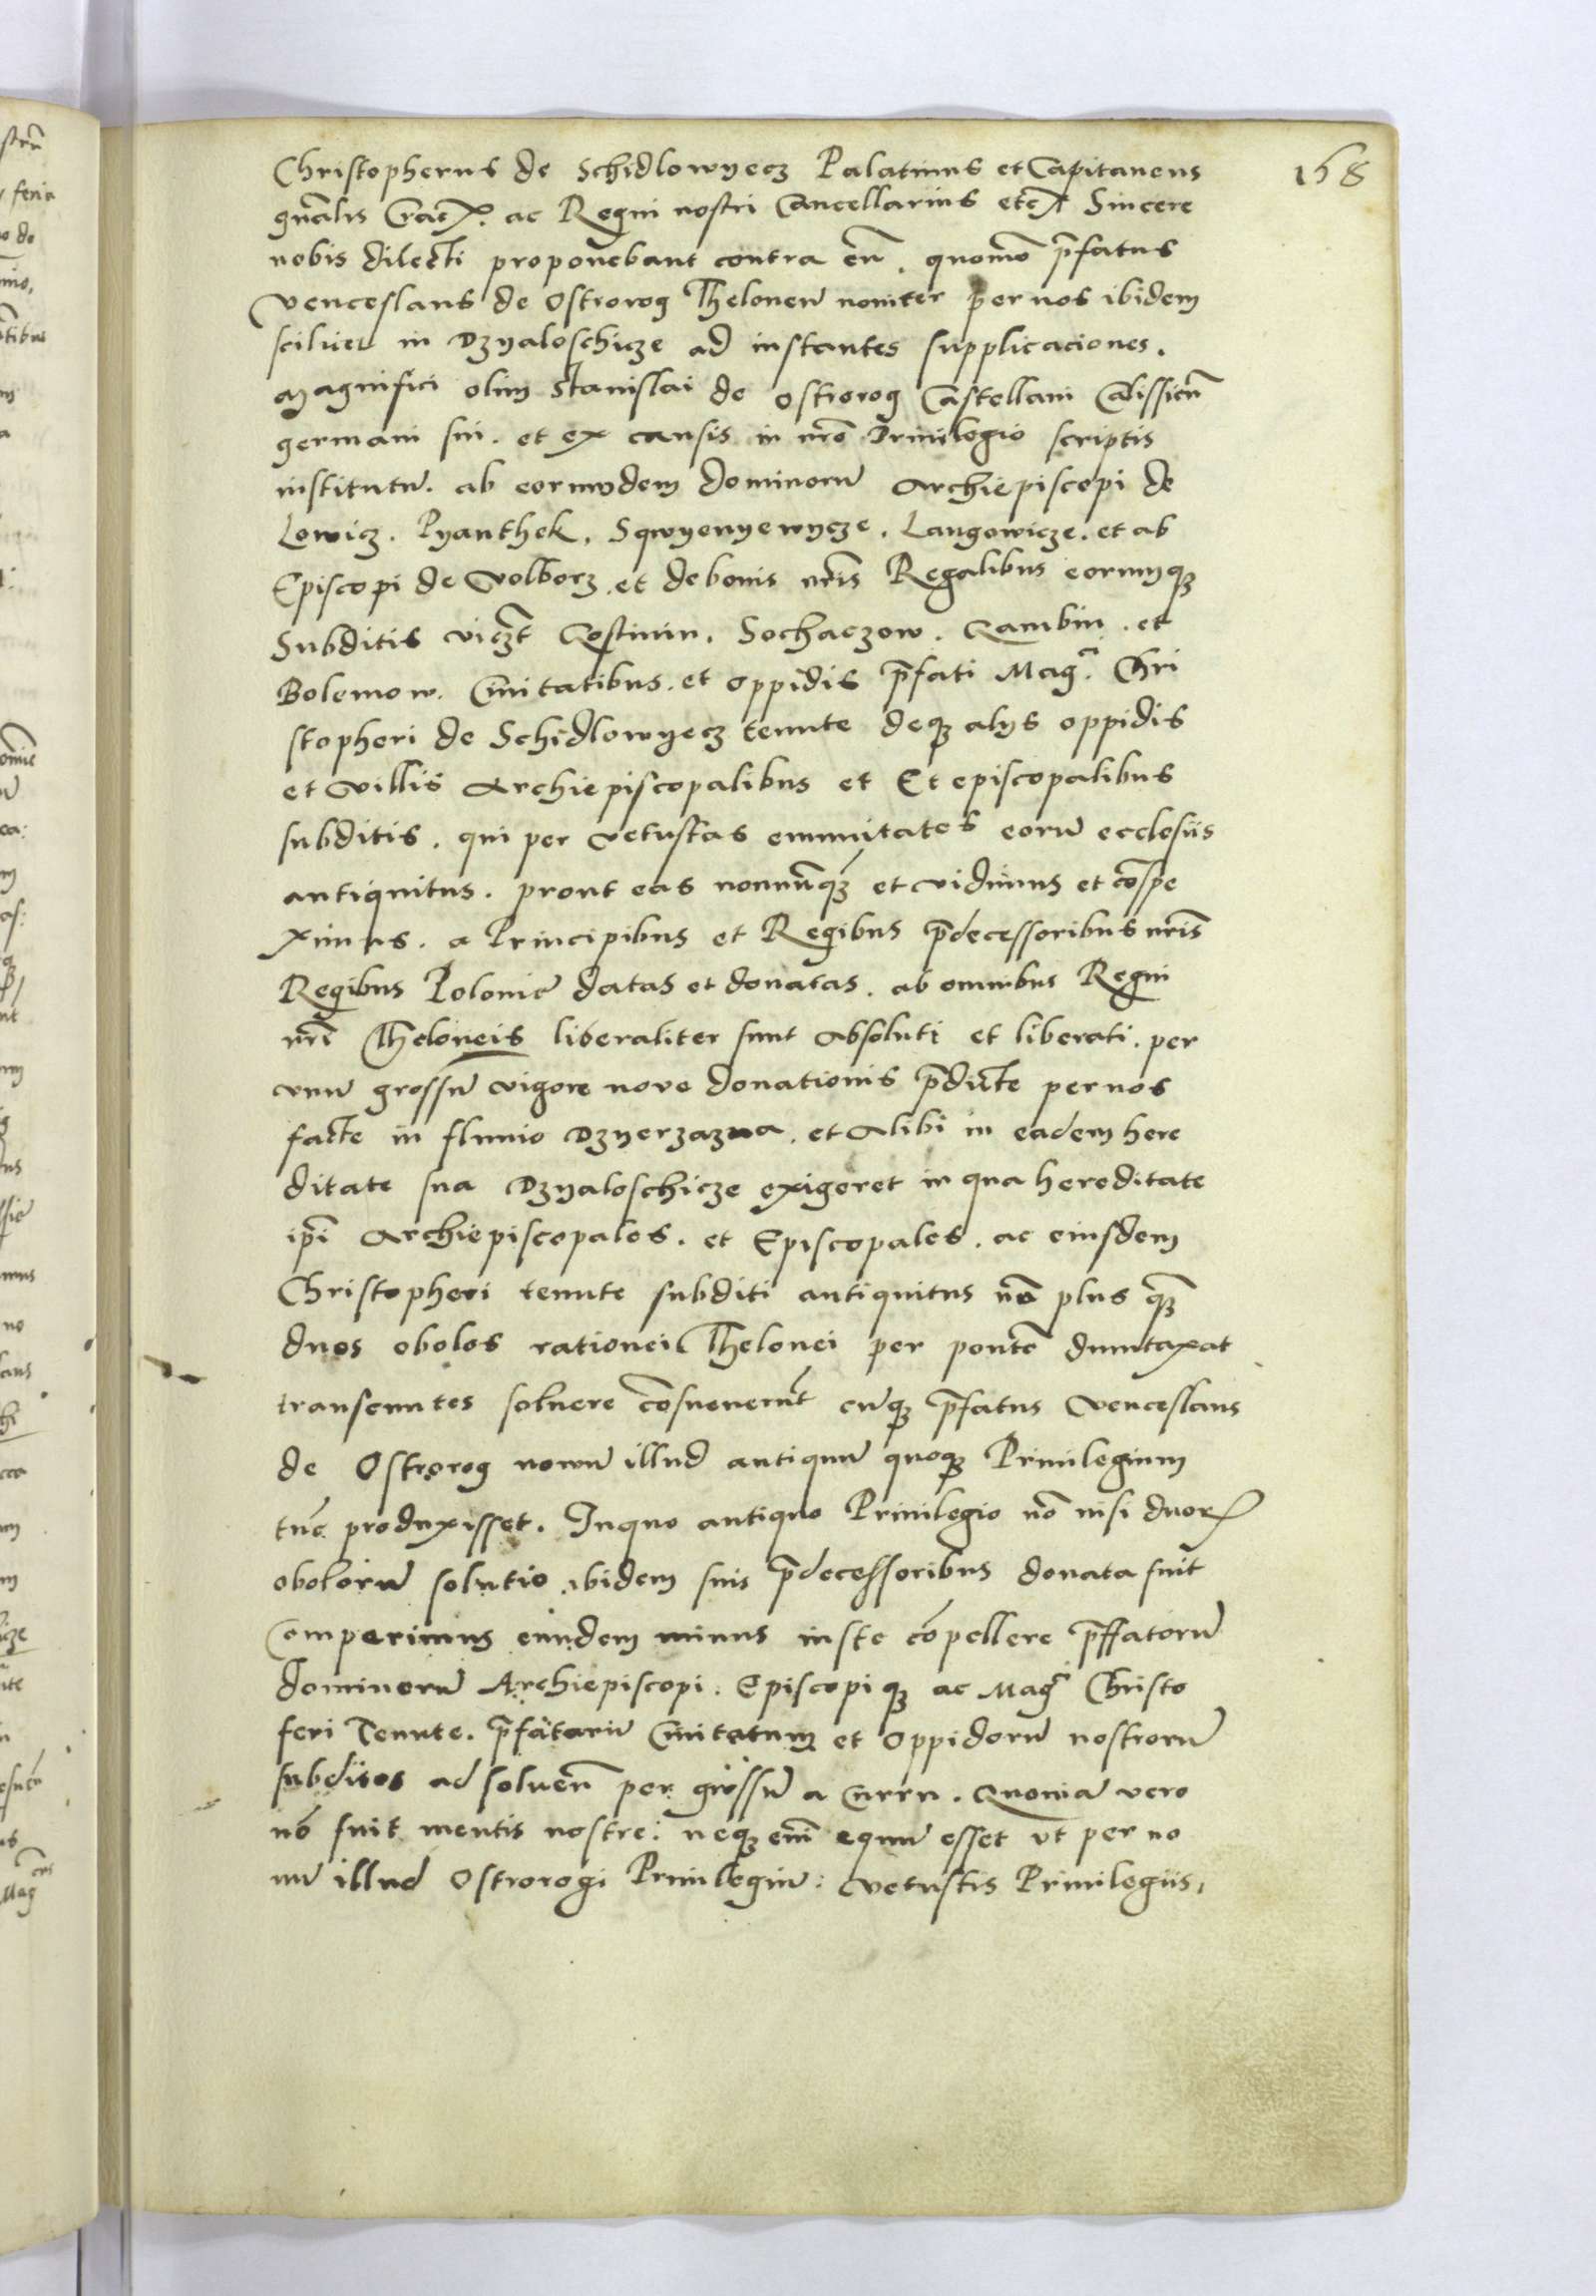 168
Christopherus de Schidlowyecz Palatinus et Capitaneus
gnãlis Crac͞. ac Regni nostri Cancellarius etc͞ Sincere
nobis dilecti proponebant contra eũ. quomõ p̃fatus
Venceslaus de Ostrorog Theloneũ noviter per nos ibidem
scilicet in Dzyaloschicze ad instantes supplicaciones.
Magnifici olim Stanislai de Ostrorog Castellani Calissieñ
germani sui. et ex causis in nr̃o Privilegio scriptis
institutũ. ab eorundem dominorũ Archiepiscopi de
Lowicz. Pyanthek, Sqwyenyewycze. Langowicze. et ab
Episcopi de Volborz. et de bonis nr̃is Regalibus eorumqꝫ
Subditis viczt̃ Gostinin. Sochaczow. Gambin. et
Bolemow. Civitatibus. et oppidis p̃fati Mag.ᶜⁱ Chri
stopheri de Schidlowyecz tenute deqꝫ alijs oppidis
et villis Archiepiscopalibus et Et episcopalibus
subditis. qui per vetustas emunitates eorũ ecclesiis
antiquitus. prout eas nonnũqꝫ et vidimus et cõspe
ximus. a Principibus et Regibus p̃decessoribus nr̃is
Regibus Polonie datas et donatas. ab omnibus Regni
nr̃i Theloneis liberaliter sunt absoluti et liberati. per
unũ grossũ vigore nove donationis p̃dicte per nos
facte in fluvio Dzyerzazna. et alibi in eadem here
ditate sua Dzyaloschicze exigeret in qua hereditate
ip̃i Archiepiscopales. et Episcopales. ac eiusdem
Christopheri tenute subditi antiquitus nõ plus qꝫ
duos obolos rationei Thelonei per pontẽ dumtaxat
transeuntes solvere cõsueverũt cũqꝫ p̃fatus Venceslaus
de Ostrorog novũ illud antiquũ quoqꝫ Privilegium
tũc produxisset. In quo antiquo Privilegio nõ nisi duorꝝ
obolorũ solutio ibidem suis p̃decessoribus donata fuit
Comperimus eundem minus iuste cõpellere p̃ffatorũ
dominorũ Archiepiscopi. Episcopi qꝫ ac Mag.ᶜⁱ Christo
feri Tenute. p̃fatarũ Civitatum et Oppidorũ nostrorũ
subditos ad solveñ per grossũ a Curru. Quoniã vero
nõ fuit mentis nostre: neqꝫ eñi equũ esset ut per no
vũ illud Ostrorogi Privilegiũ: vetustis Privilegiis,